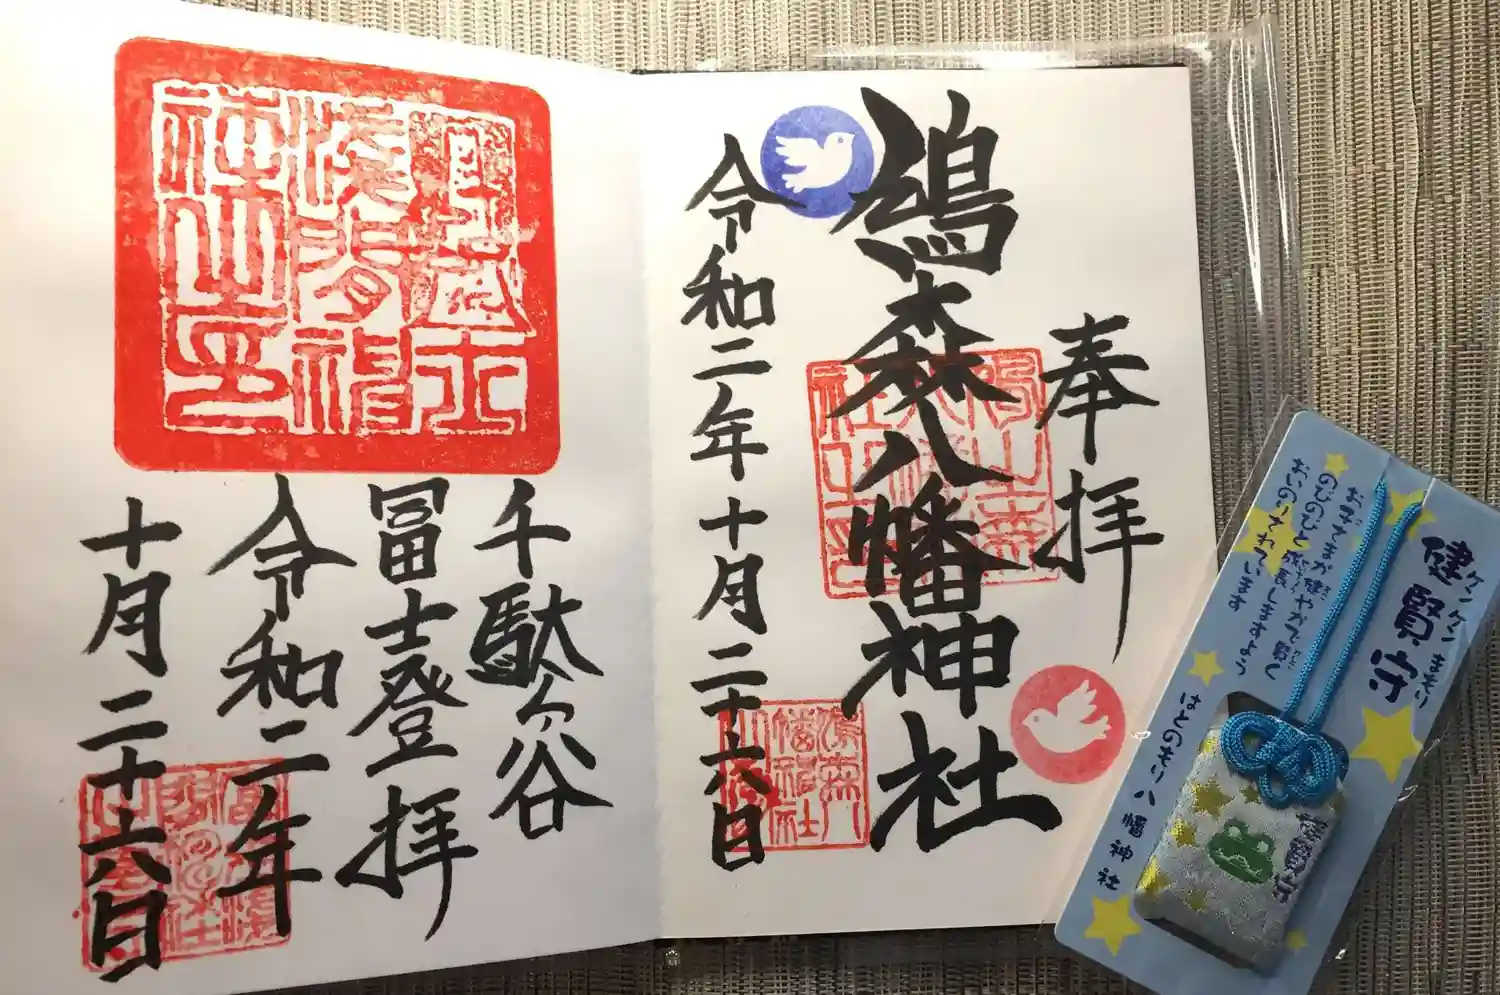 奉拝
鳩森八幡神社
令和二年十月二十六日
千駄ヶ谷
冨士登拝
令和二年
十月二十六日
ケンケンまもり
健賢守
お子さまが健やかで賢く
のびのびと成長しますよう
おいのりされています
はとのもり八幡神社
健賢守